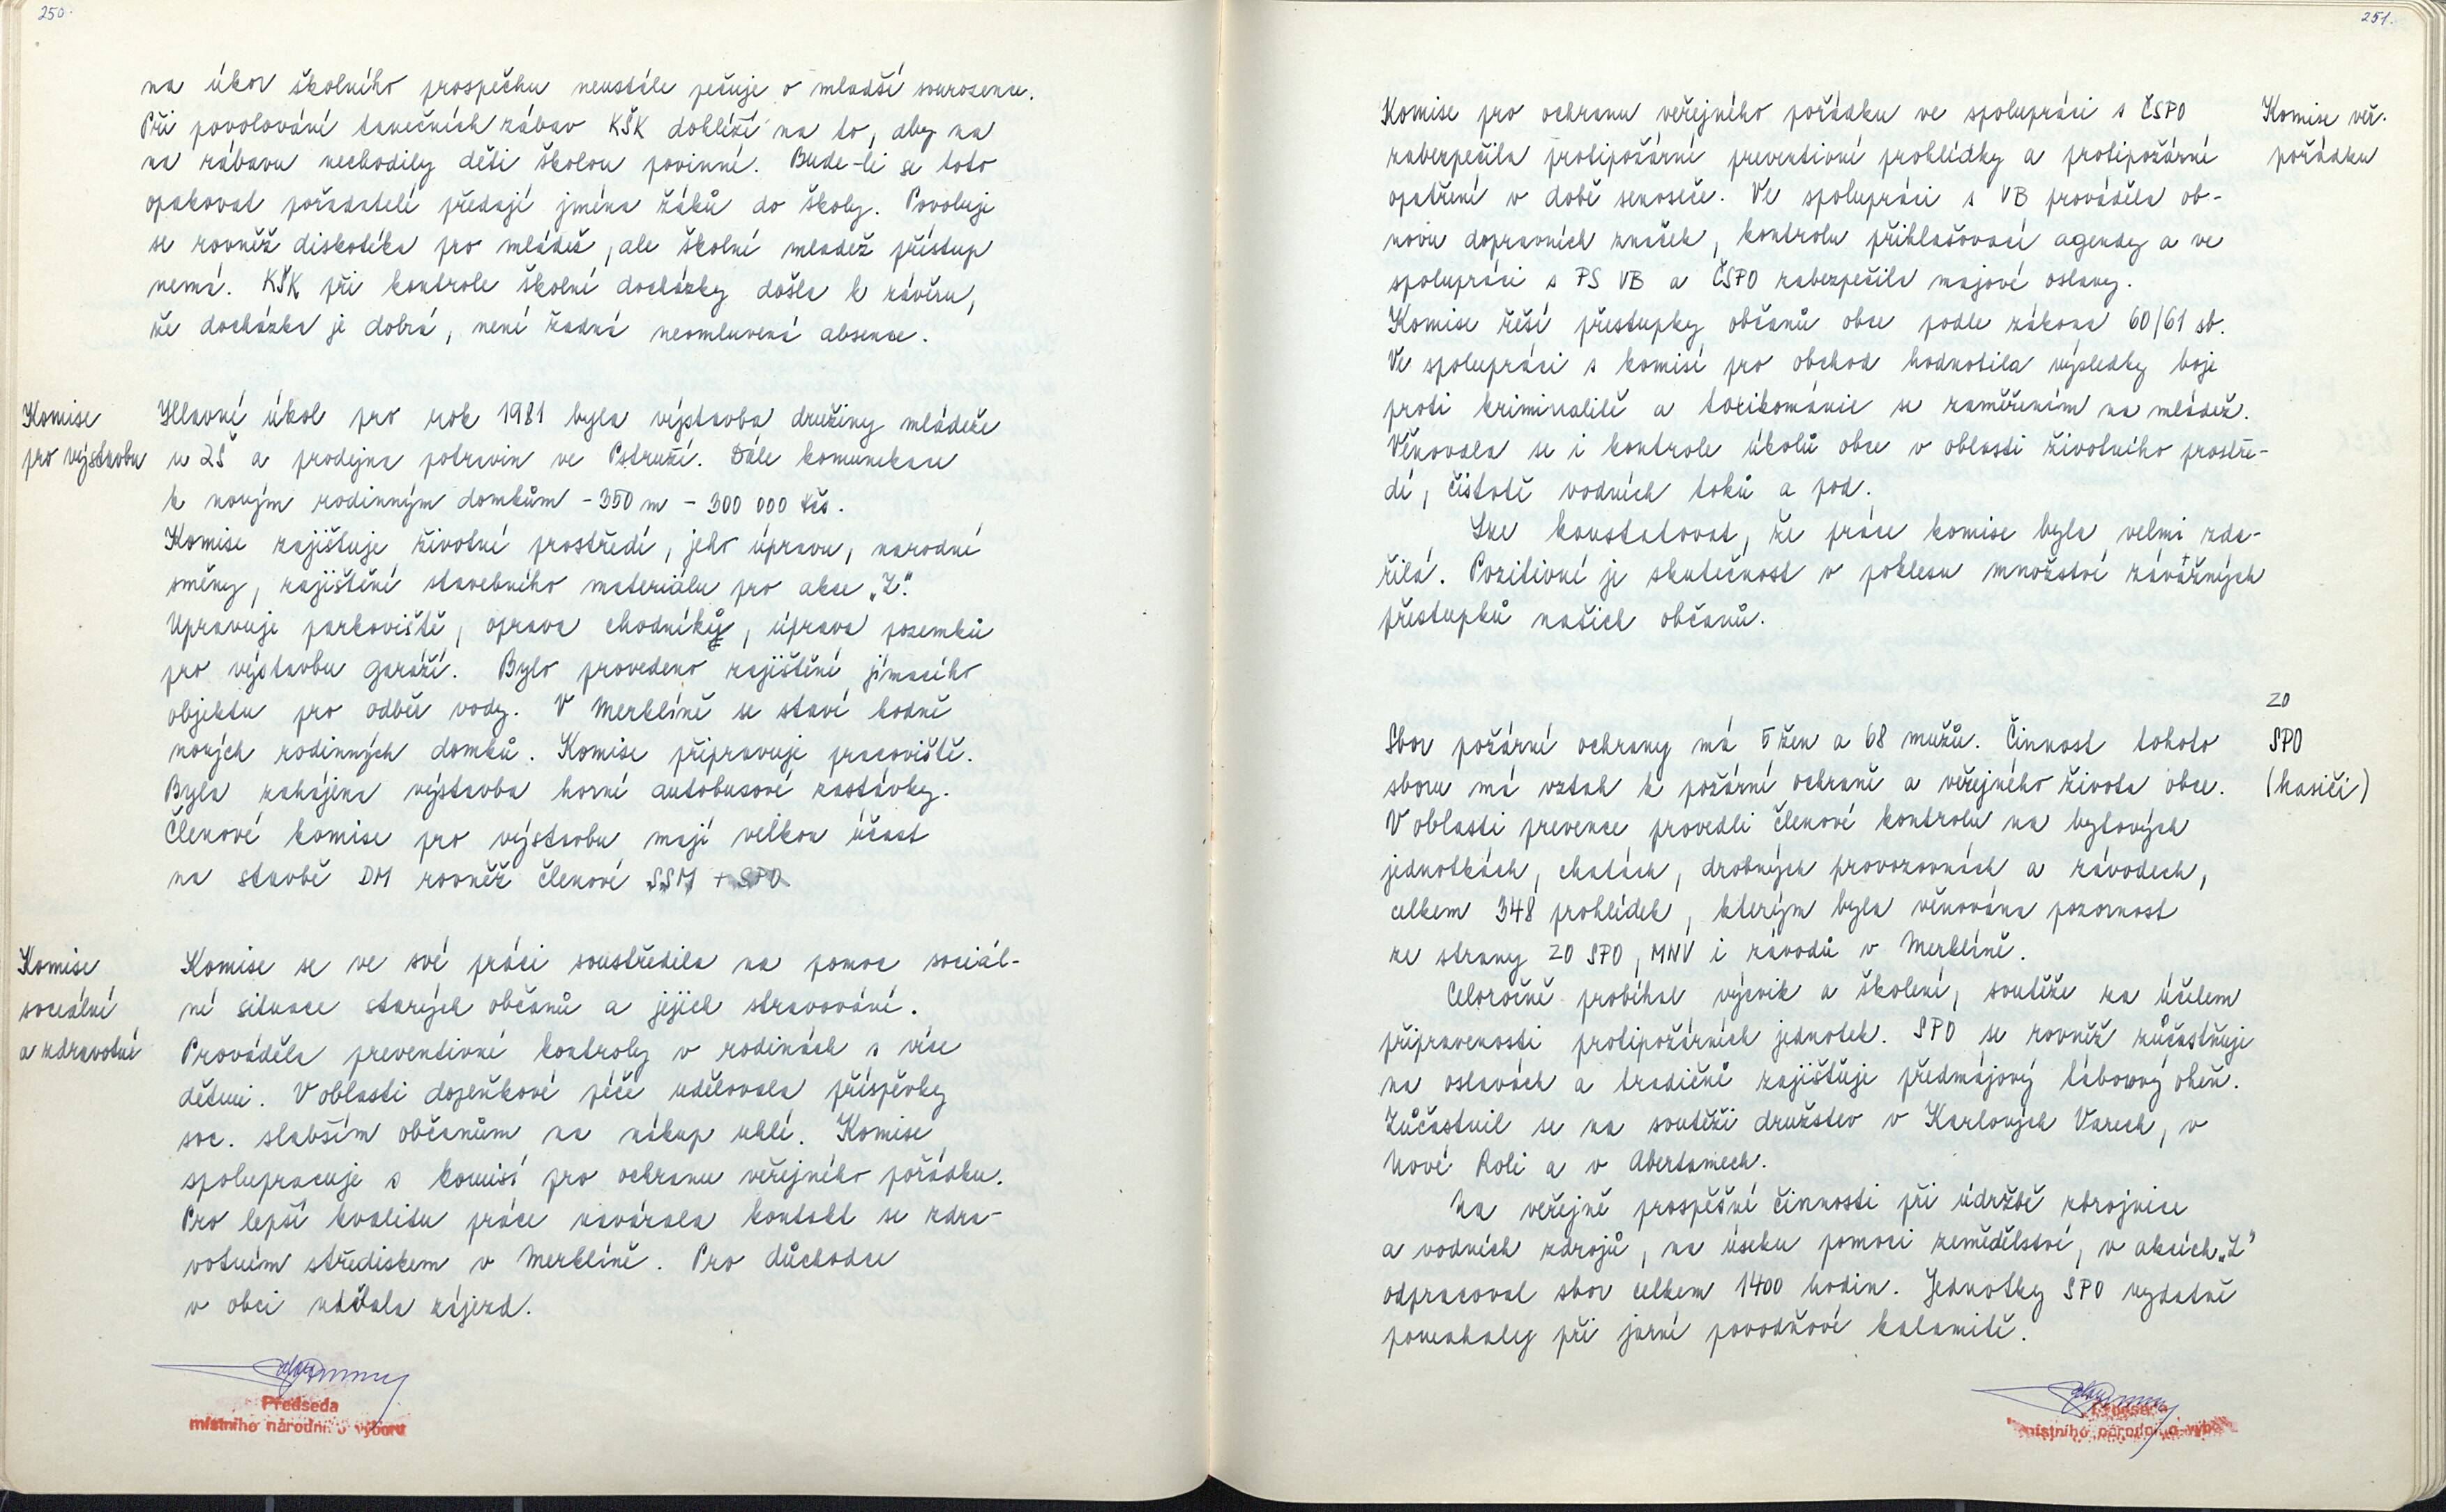 250.
na úkor školního prospěchu neustále pečuje o mladší sourozence.
Při povolování tanečních zábav KŠK dohlíží na to, aby na
na zábavu nechodily děti školou povinné. Bude-li se toto
opakovat pořadatelé předají jména žáků do školy. Povoluje
se rovněž diskotéka pro mládež, ale školní mladež přístup
nemá. KŠK při kontrole školní docházky došla k závěru,
že docházka je dobrá, není žadná neomluvená absence.
Komise
pro výstavbu
Hlavní úkol pro rok 1981 byla výstavba družiny mládeže
u ZŠ a prodejna potravin ve Pstruží. Dále komunikace
k novým rodinným domkům - 350 m - 300 000 Kčs.
Komise zajišťuje životní prostředí, jeho úpravu, narodní
směny, zajištění stavebního materiálu pro akce „Z".
Upravuje parkoviště, oprava chodníků, úprava pozemků
pro výstavbu garáží. Bylo provedeno zajištění jímacího
objektu pro odběr vody. V Merklíně se staví hodně
nových rodinných domků. Komise připravuje pracoviště.
Byla zahájena výstavba horní autobusové zastávky.
Členové komise pro výstavbu mají velkou účast
na stavbě DM rovněž členové SSM + SPO
Komise
sociální
a zdravotní
Komise se ve své práci soustředila na pomoc sociál-
ní situace starých občanů a jejich stravování.
Prováděla preventivní kontroly v rodinách s více
dětmi. V oblasti doplňkové péče udělovala příspěvky
soc. slabším občanům na nákup uhlí. Komise
spolupracuje s komisí pro ochranu veřejného pořádku.
Pro lepší kvalitu práce navázala kontakt se zdra-
votním střediskem v Merklíně. Pro důchodce
v obci udělala zájezd.
Předseda
místního národního výboru
251.
Komise veř.
pořádku
Komise pro ochranu veřejného pořádku ve spolupráci s ČSPO
zabezpečila protipožární preventivní prohlídky a protipožární
opatření v době senoseče. Ve spolupráci s VB prováděla ob-
novu dopravních značek, kontrolu přihlašovací agendy a ve
spolupráci s PS VB a ČSPO zabezpečila majové oslavy.
Komise řeší přestupky občanů obce podle zákona 60/61 sb.
Ve spolupráci s komisí pro obchod hodnotila výsledky boje
proti kriminalitě a toxikománii se zaměřením na mládež.
Věnovala se i kontrole úkolů obce v oblasti životního prostře-
dí, čistotě vodních toků a pod.
Lze konstatovat, že práce komise byla velmi zda-
řilá. Pozitivní je skutečnost v poklesu množství závažných
přestupků našich občanů.
ZO
SPO
(hasiči)
Sbor požární ochrany má 5 žen a 68 mužů. Činnost tohoto
sboru má vztah k požární ochraně a veřejného života obce.
V oblasti prevence provedli členové kontrolu na bytových
jednotkách, chatách, drobných provozovnách a závodech,
celkem 348 prohlídek, kterým byla věnována pozornost
ze strany ZO SPO, MNV i závodů v Merklíně.
Celoročně probíhal výcvik a školení, soutěže za účelem
připravenosti protipožárních jednotek. SPO se rovněž zůčastňuje
na oslavách a tradičně zajišťuje předmájový táborový oheň.
Zůčastnil se na soutěži družstev v Karlových Varech, v
Nové Roli a v Abertamech.
Na veřejně prospěšné činnosti při údržbě zbrojnice
a vodních zdrojů, na úseku pomoci zemědělství, v akcích „Z"
odpracoval sbor celkem 1400 hodin. Jednotky SPO vydatně
pomahaly při jarní povodňové kalamitě.
místního národního výboru